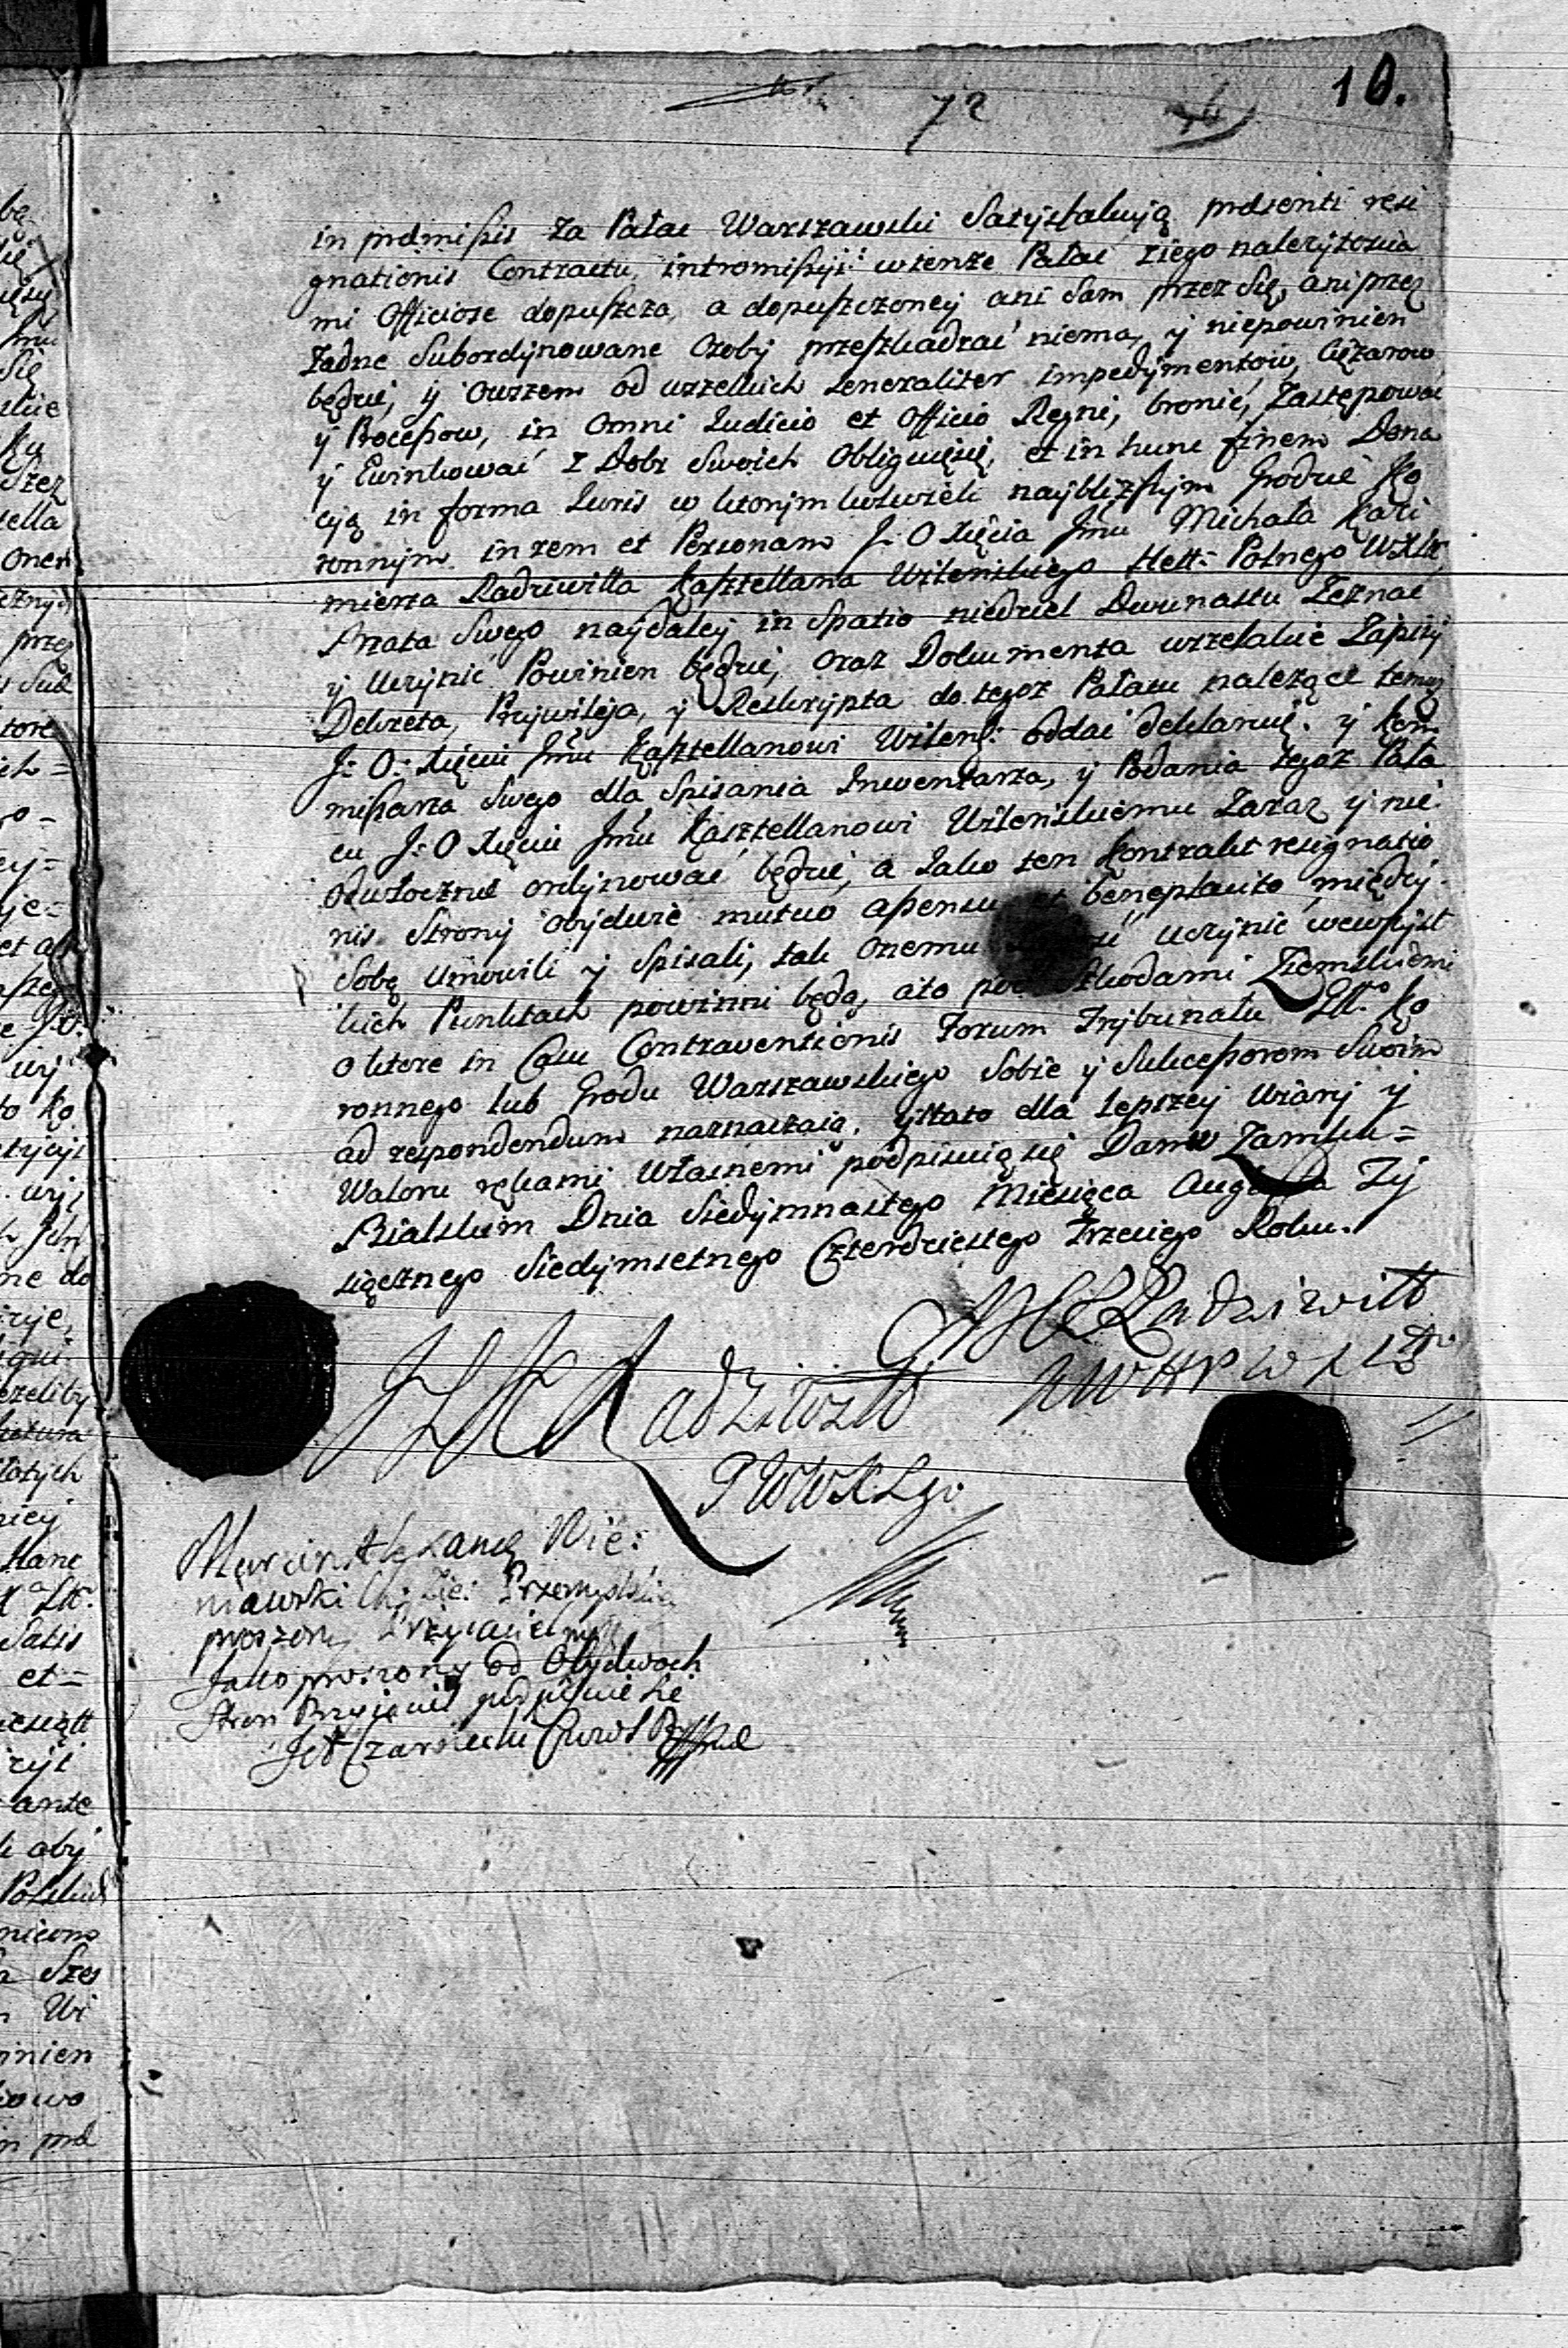 10.
72
in præmissis za Pałac Warszawski Satysfakcyją præsenti resi
gnationis Contractu, intromissyi: w tenże Pałac z iego należytościa
mi Officiose dopuszcza, a dopuszczoney ani Sam przez Się, ani przez
żadne Subordynowane Osoby przeszkadzać niema, y niepowinien
będzie, y owszem od wszelkich Generaliter impedymentow, Ciężarow
y Processow, in Omni Iudicio et Officio Regni, bronić, Zastępować
y Ewinkować z Dobr Swoich Obliguięsię, et in hunc finem Dona
cyą in forma Iuris w ktorym kolwiek nayblizszym Grodzie Ko
ronnym in rem et Personam J: O Xięcia Jmci Michała Kazi
mierza Radziwiłła Kasztellana Wileńskiego Hett: Polnego WXLitt
Brata Swego naydaley in Spatio niedziel Dwunastu Zeznać
y Uczynić Powinien będzie, oraz Dokumenta wszelakie Zapisy
Dekreta, Przywileja, y Reskrypta do tegoz Pałacu należące temuż
J: O: Xięciu Jmci Kasztellanowi Wileńs: oddać deklaruie. y Kom
missarza Swego dla Spisania Inwentarza, y Podania tegoz Pała
cu J: O Xięciu Jmci Kasztellanowi Wileńskiemu Zaraz y nie
odwłocznie ordynować będzie, a Iako ten Kontrakt resignatio
nis Strony obydwie mutuo assensu et beneplacito między
Sobą Umowili y Spisali, tak Onemu uczynić wewszyst
kich Punktach powinni będą, ato pod Szkodami Ziemskiemi
o ktore in Casu Contraventionis Forum Trybunału Głł: Ko
ronnego lub Grodu Warszawskiego Sobie y Sukcessorom Swoim
ad respondendum naznaczaią, yttato dla Lepszey Wiary y
Waloru rękami Własnemi podpisuiąsię Dan w Zamku=
Bialskim Dnia Siedymnastego Miesięca Augusta Ty
siącznego Siedymsetnego Czterdziestego Trzeciego Roku.
Radziwiłł
Radziwiłł
PWWXLgo
Marcin Alexandr Wie:
niawski Prze
proszony Przyiaciel
Jako proszony od Obydwoch
Stron Przyiaciel podpisuie Się
Czarnecki